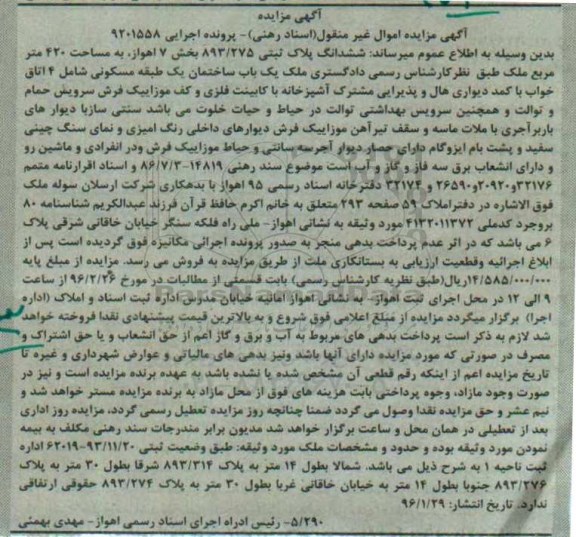 آگهی مزایده
آگهی مزایده اموال غیر منقول(اسناد رهنی)- پرونده اجرایی ۹۲۰۱۵۵۸
بدین وسیله به اطلاع عموم میرساند: ششدانگ پلاک ثبتی ۸۹۳/۲۷۵ بخش ۷ اهواز، به مساحت ۴۲۰ متر
مربع ملک طبق نظرکارشناس رسمی دادگستری ملک یک باب ساختمان یک طبقه مسکونی شامل ۴ اتاق
خواب با کمد دیواری هال و پذیرایی مشترک آشپزخانه با کابینت فلزی و کف موزاییک فرش سرویس حمام
و توالت و همچنین سرویس بهداشتی توالت در حیاط و حیات خلوت می باشد سنتی سازبا دیوار های
باربرآجری با ملات ماسه و سقف تیرآهن موزاییک فرش دیوارهای داخلی رنگ امیزی و نمای سنگ چینی
سفید و پشت بام ایزوگام دارای حصار دیوار آجرسه سانتی و حیاط موزاییک فرش ودر انفرادی و ماشین رو
و دارای انشعاب برق سه فاز و گاز و آب است موضوع سند رهنی ۱۴۸۱۹-۸۶/۷/۳ و اسناد اقرارنامه متمم
۳۲۱۷۶و۲۰۹۲۰و۲۶۵۹۰ و ۳۲۱۷۴ دفترخانه اسناد رسمی ۹۵ اهواز با بدهکاری شرکت ارسلان سوله ملک
فوق الاشاره در دفتراملاک ۵۹ صفحه ۲۹۳ متعلق به خانم اکرم حافظ قرآن فرزند عبدالکریم شناسنامه ۸۰
بروجرد کدملی ۴۱۳۲۰۱۱۳۷۲ مورد وثیقه به نشانی اهواز- ملی راه فلکه سنگر خیابان خاقانی شرقی پلاک
۶ می باشد که در اثر عدم پرداخت بدهی منجر به صدور پرونده اجرائی مکانیزه فوق گردیده است پس از
ابلاغ اجرائیه وقطعیت ارزیابی به بستانکاری بانک ملت از طریق مزایده به فروش می رسد. مزایده از مبلغ پایه
۱۴/۵۸۵/۰۰۰/۰۰۰ریال(طبق نظریه کارشناس رسمی) بابت قسمتی از مطالبات در مورخ ۹۶/۲/۲۶ از ساعت
۹ الی ۱۲ در محل اجرای ثبت اهواز- به نشانی اهواز امانیه خیابان مدرس اداره ثبت اسناد و املاک (اداره
اجرا) برگزار میگردد مزایده از مبلغ اعلامی فوق شروع و به بالاترین قیمت پیشنهادی نقدا فروخته خواهد
شد لازم به ذکر است پرداخت بدهی های مربوط به آب و برق و گاز اعم از حق انشعاب و یا حق اشتراک و
مصرف در صورتی که مورد مزایده دارای آنها باشد ونیز بدهی های مالیاتی و عوارض شهرداری و غیره تا
تاریخ مزایده اعم از اینکه رقم قطعی آن مشخص شده یا نشده باشد به عهده برنده مزایده است و نیز در
صورت وجود مازاد، وجوه پرداختی بابت هزینه های فوق از محل مازاد به برنده مزایده مستر خواهد شد و
نیم عشر و حق مزایده نقدا وصول می گردد ضمنا چنانچه روز مزایده تعطیل رسمی گردد، مزایده روز اداری
بعد از تعطیلی در همان محل و ساعت برگزار خواهد شد مدیون برابر مندرجات سند رهنی مکلف به بیمه
نمودن مورد وثیقه بوده و حدود و مشخصات ملک مورد وثیقه: طبق وضعیت ثبتی ۹۳/۱۱/۲۰-۶۲۰۱۹ اداره
ثبت ناحیه ۱ به شرح ذیل می باشد. شمالا بطول ۱۴ متر به پلاک ۸۹۳/۳۱۴ شرقا بطول ۳۰ متر به پلاک
۸۹۳/۲۷۶ جنوبا بطول ۱۴ متر به خیابان خاقانی غربا بطول ۳۰ متر به پلاک ۸۹۳/۲۷۴ حقوقی ارتفاقی
ندارد. تاریخ انتشار: ۹۶/۱/۲۹
۵/۲۹۰- رئیس ادراه اجرای اسناد رسمی اهواز- مهدی بهمئی